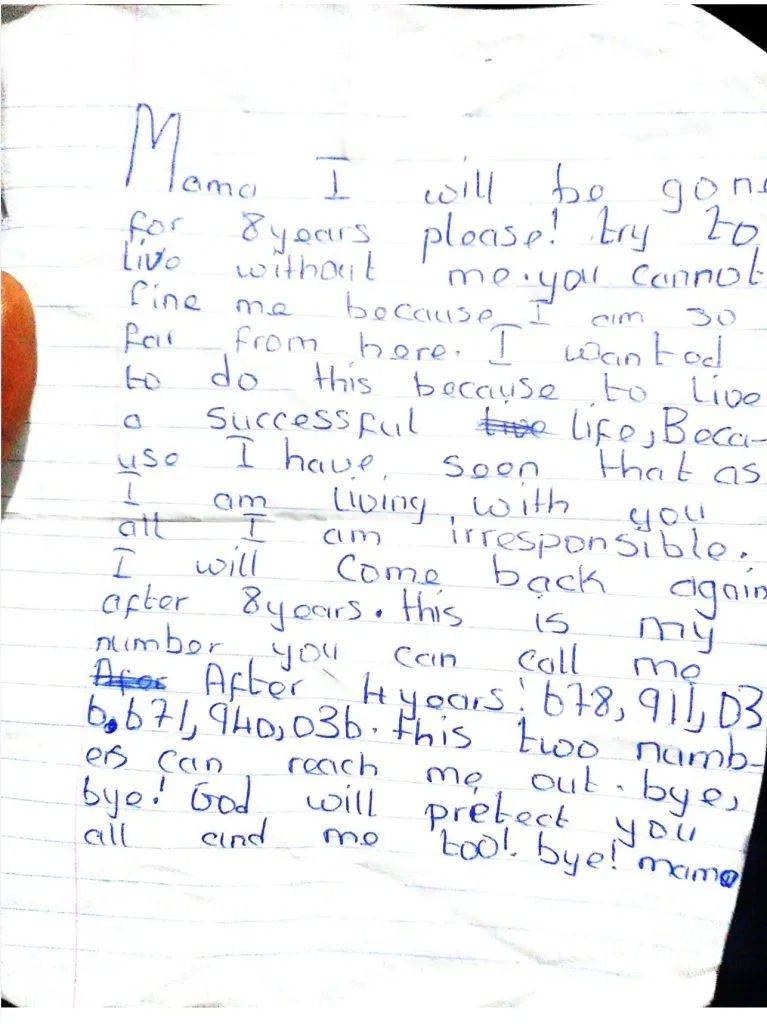 Mama I will be gone
for 8years please! try to
live without me. you cannot
fine me because I am so
far from here. I wanted
to do this because to live
a successful live life, Beca-
use I have seen that as
I am living with you
all I am irresponsible.
I will come back again
after 8years. this is my
number you can call me
After After 4years! 678,911,03
6.671,940,036. this two numb-
ers can reach me out. bye,
bye! God will pretect you
all and me too! bye! mama